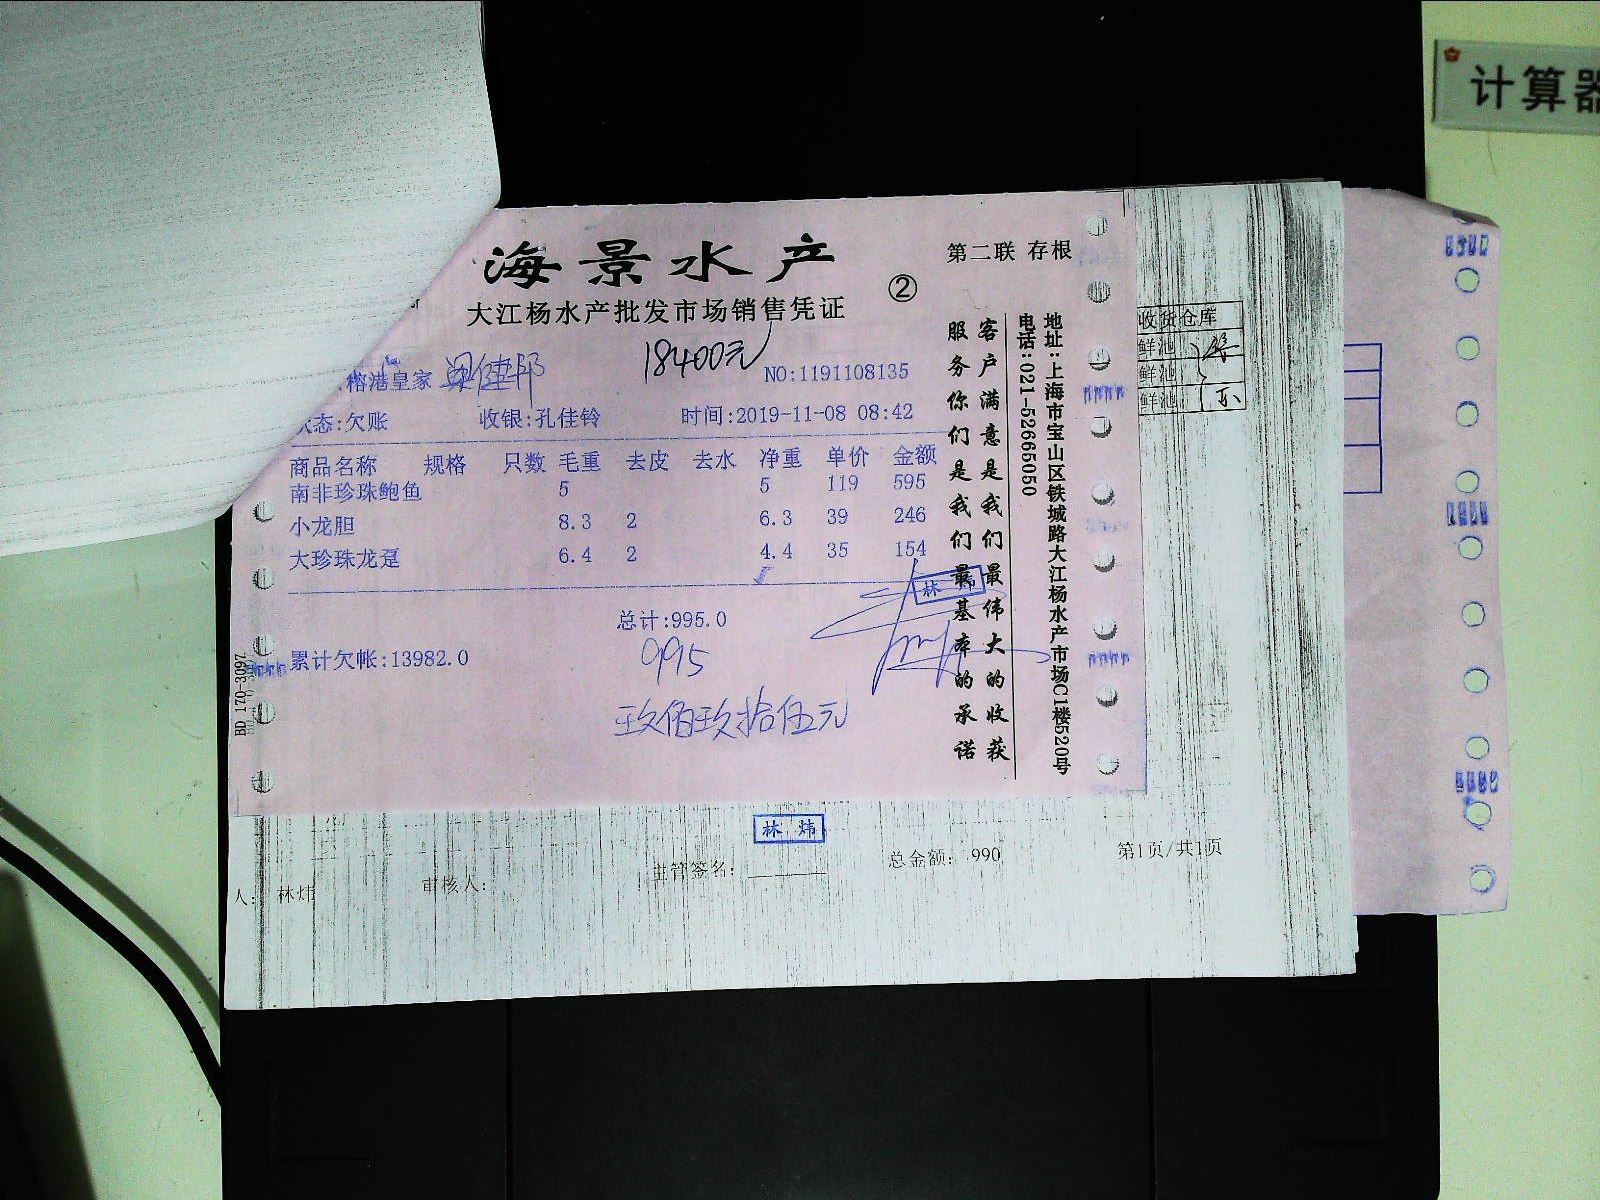 计算器
海景水产
第二联 存根
②
大江杨水产批发市场销售凭证
18400元
榕港皇家
NO:1191108135
状态:欠账 收银:孔佳铃 时间:2019-11-08 08:42
商品名称 规格 只数 毛重 去皮 去水 净重 单价 金额
南非珍珠鲍鱼 5 5 119 595
小龙胆 8.3 2 6.3 39 246
大珍珠龙趸 6.4 2 4.4 35 154
林 炜
总计:995.0
累计欠帐:13982.0
995
玖佰玖拾伍元
客户满意是我们最伟大的收获
服务你们是我们最基本的承诺
地址:上海市宝山区铁城路大江杨水产市场C1楼520号
电话:021-52665050
BD 170-3097
收货仓库
鲜池
鲜池
鲜池
林 炜
人: 林炜 审核人: 主管签名: 总金额: 990 第1页/共1页